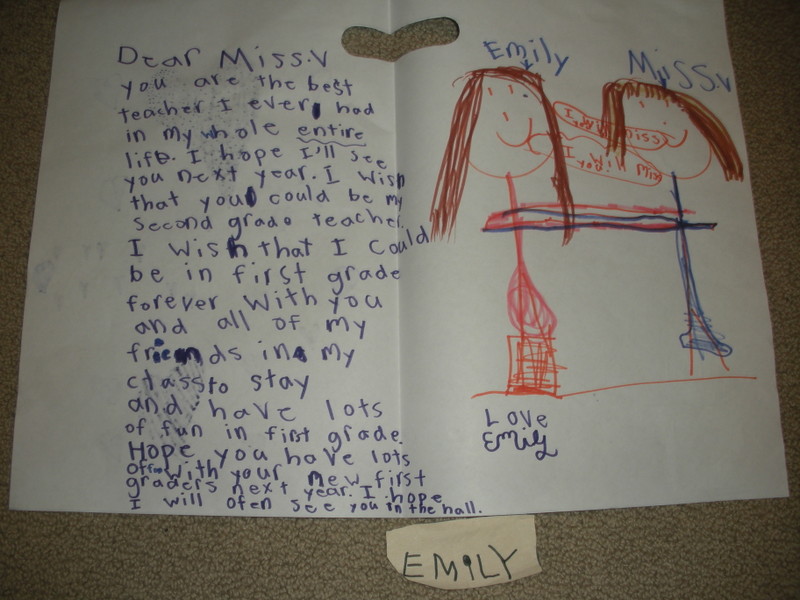 Dear Miss.V
you are the best
teacher I ever had
in my whole entire
life. I hope I'll see
you next year. I wish
that you could be my
second grade teacher.
I wish that I could
be in first grade
forever with you
and all of my
friends in my
class to stay
and have lots
of fun in first grade.
Hope you have lots
off with your new first
graders next year. I hope
I will ofen see you in the hall.
Emily
MiSS.V
I will miss
Love
Emily
EMiLY